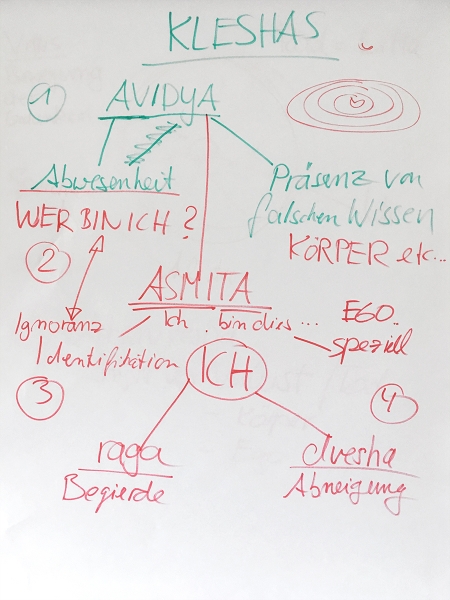 KLESHAS
1 AVIDYA
Abwesenheit
Präsenz von
falschen Wissen
WER BIN ICH ?
KÖRPER etc...
2
ASMITA
Ich bin dies ...
EGO..
speziell
Ignoranz
Identifikation
ICH
3
4
raga
Begierde
dvesha
Abneigung